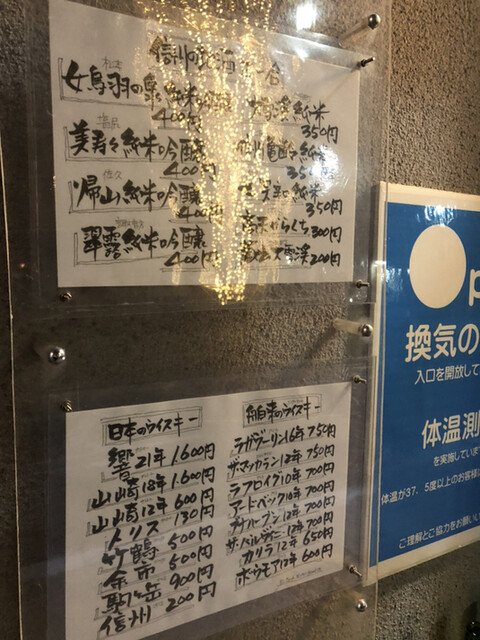 信州の 酒 一合
松本
女鳥羽の泉 純米吟醸
400円
塩尻
美寿々純米吟醸
400円
佐久
帰山純米吟醸
400円
翠露純米吟醸
400円
渓純米
350円
亀齢純米
350円
純米
350円
からくち300円
大雪渓200円
日本のウイスキー
響21年 1,600円
山崎18年 1,600円
山崎12年 600円
トリス 130円
竹鶴 500円
余市 500円
駒ヶ岳 900円
信州 200円
舶来のウイスキー
ラガブーリン16年 750円
ザ・マッカラン12年 750円
ラフロイグ10年 700円
アードベック10年 700円
ブナハーブン12年 700円
ザ・バルヴェニー12年 700円
カリラ12年 650円
ボウモア12年 600円
Op
換気の
入口を開放して
体温測
を実施していま
体温が37．5度以上のお客様
ご理解とご協力をお願いい